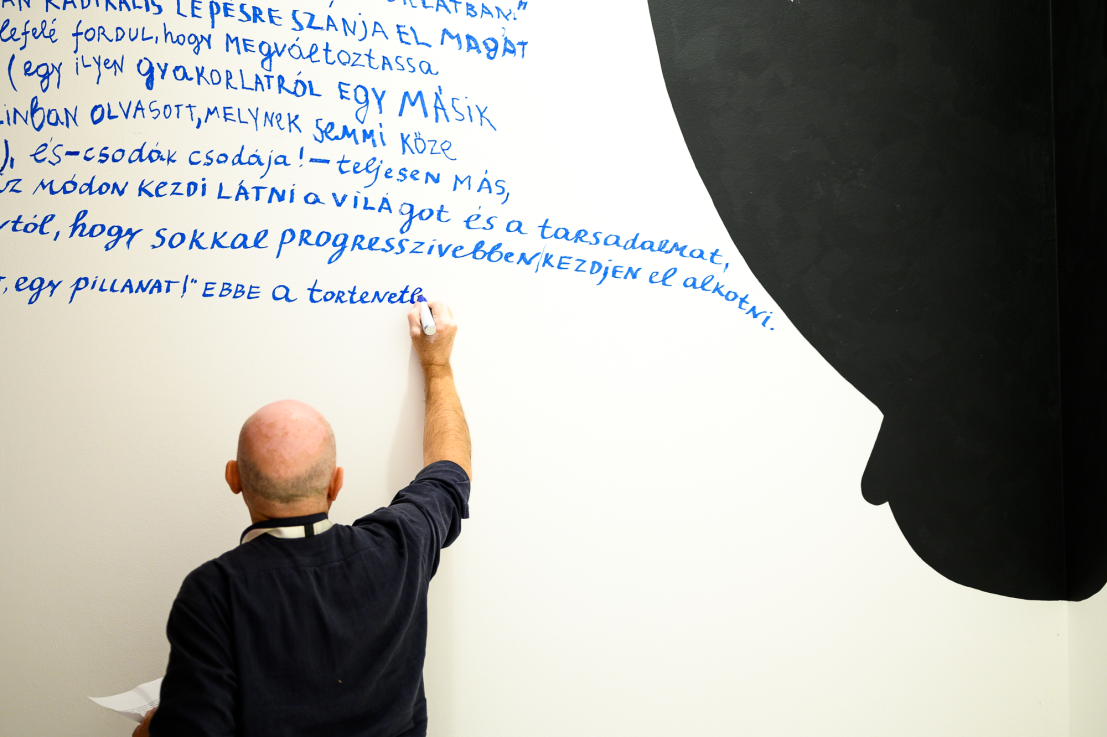 RADIKÁLIS LÉPÉSRE SZÁNJA EL MAGÁT
lefelé FORDUL, hogy MEGváltoztassa
(egy ilyEN gyakORLATRÓL EGY MÁSIK
OLVASOTT, MELYNEK SEMMI KÖZE
), és-csodák csodája! - teljesEN MÁS,
MÓDON KEZDI LÁTNi a VILÁgot és a tarsadalMat,
hogy SOKKAL PROGRESSZívebbEN KEZDJEN el alkotNi.
, egy PILLANAT!" EBBE a törtENEtb